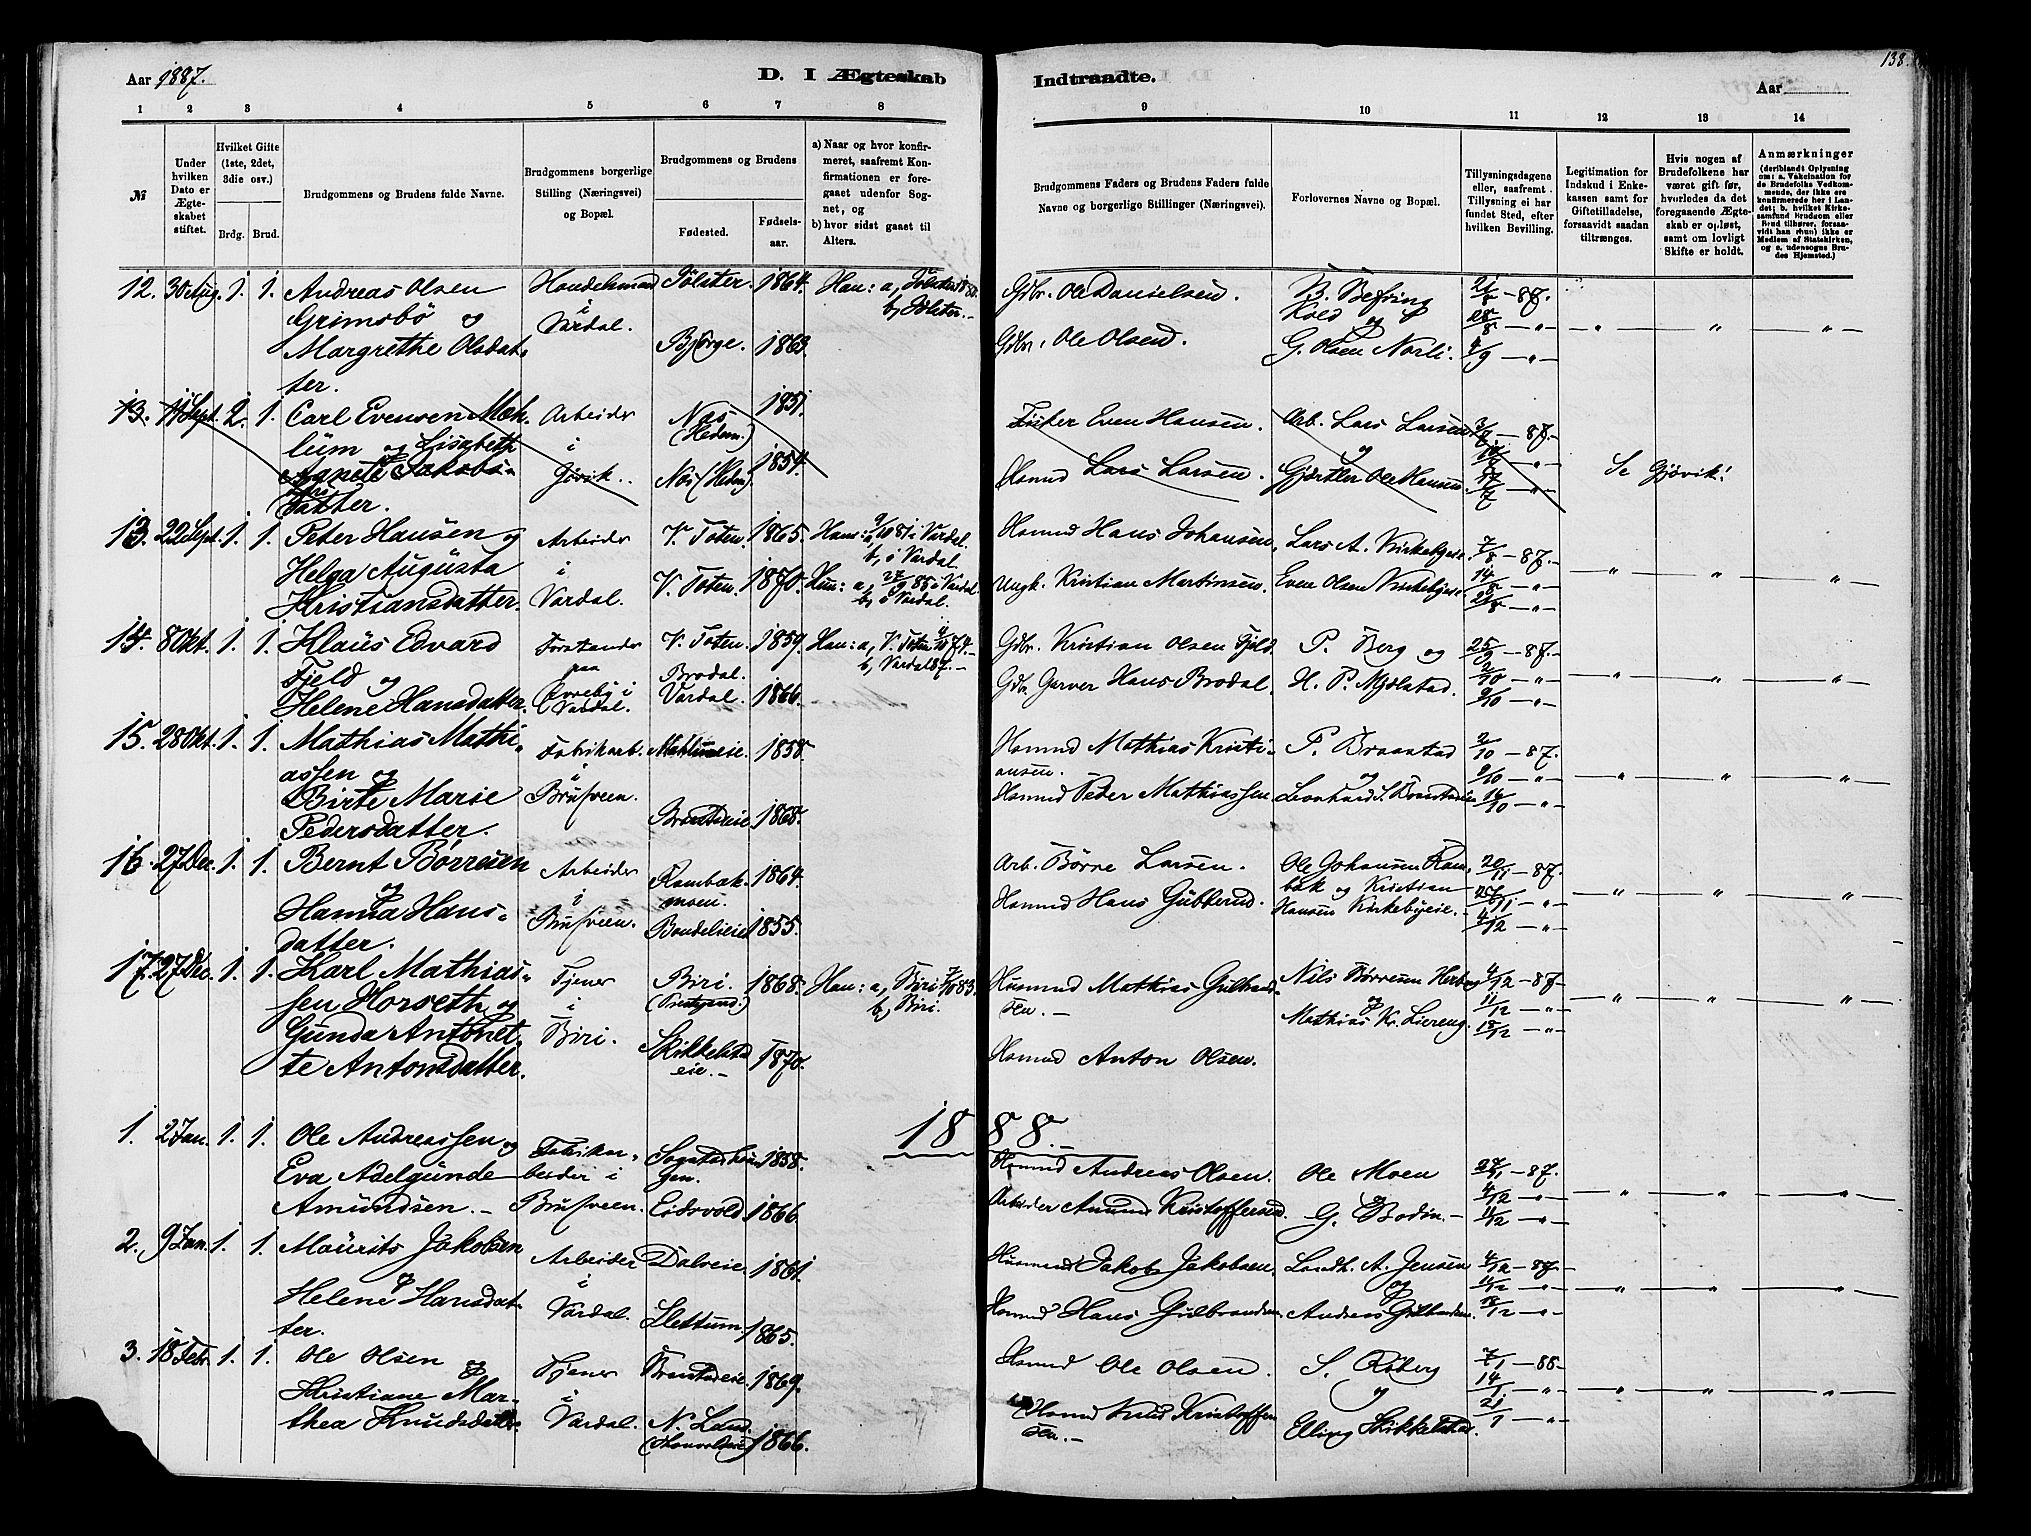 138.
Aar 1887.
D. I Ægteskab
Indtraadte.
Aar
1 2 3 4 5 6 7 8
9 10 11 12 13 14
№
Under hvilken Dato er Ægteskabet stiftet.
Hvilket Gifte (1ste, 2det, 3die osv.)
Brdg. Brud.
Brudgommens og Brudens fulde Navne.
Brudgommens borgerlige Stilling (Næringsvei) og Bopæl.
Brudgommens og Brudens
Fødested. Fødselsaar.
a) Naar og hvor konfirmeret, saafremt Konfirmationen er foregaaet udenfor Sognet, og
b) hvor sidst gaaet til Alters.
Brudgommens Faders og Brudens Faders fulde Navne og borgerlige Stillinger (Næringsvei).
Forlovernes Navne og Bopæl.
Tillysningsdagene eller, saafremt Tillysning ei har fundet Sted, efter hvilken Bevilling.
Legitimation for Indskud i Enkekassen samt for Giftetilladelse, forsaavidt saadan tiltrænges.
Hvis nogen af Brudefolkene har været gift før, hvorledes da det foregaaende Ægteskab er opløst, samt om lovligt Skifte er holdt.
Anmærkninger
12. 30 Aug. 1. 1. Andreas Olsen
Grimsbø og
Margrethe Olsdat-
ter.
Handelsmand
i
Vardal.
Jølster. 1864.
Bjørge. 1863.
Gdbr. Ole Danielsen.
Gdbr. Ole Olsen.
B. Befring
og
G. Olsen Norli.
21/8 - 87.
28/8 - " -
4/9 - " -
13. 11 Sept. 2. 1. Carl Evensen Mæh-
lum og Lisabeth
Agnete Jakobs-
datter.
Arbeider
i
Gjøvik.
Næs
(Hedem.)
1851.
Næs (Hedem.) 1854.
Even Hansen.
Husmd Lars Larsen.
Arb. Lars Larsen
og
Gjørtler Ole Hansen.
Se Gjøvik!
13. 22 Sept. 1. 1. Peter Hansen og
Helga Augusta
Kristiansdatter.
Arbeider
i
Vardal.
V. Toten. 1865.
V. Toten. 1870.
Han: a, 9/10 81 i Vardal.
b, i Vardal.
Hun: a, 27/9 85 i Vardal
b, i Vardal.
Husmd Hans Johansen.
Ungk. Kristian Martinsen.
Lars A. Kirkebyeie.
Even Olsen Kirkebyeie.
7/8 - 87.
14/8 - " -
21/8 - " -
14. 8 Okt. 1. 1. Klaus Edvard
Fjeld og
Helene Hansdatter.
Forstander
paa
i
Vardal.
V. Toten. 1859.
Brodal.
Vardal. 1866.
Han: a, V. Toten 4/10 74.
b, Vardal 87.
Gdbr. Kristian Olsen Fjeld.
Gdbr. Garver Hans Brodal.
P. Berg og
H. P. Mjølstad.
25/9 - 87.
2/10 - " -
9/10 - " -
15. 28 Okt. 1. 1. Mathias Mathi-
assen og
Birte Marie
Pedersdatter.
Fabrikarb.
i
Brufveen.
1858.
1868.
Husmd Mathias Kristi-
ansen.
Husmd Peder Mathiassen.
P. Braastad
og
2/10 - 87.
9/10 - " -
16/10 - " -
16. 27 Dec. 1. 1. Bernt Børresen
og
Hanna Hans-
datter.
Arbeider
i
Brufveen.
Rambæk-
moen.
1864.
Bondelieie 1855.
Arb. Børre Larsen.
Husmd Hans Gubberud.
Ole Johansen Ram-
bæk og Kristian
Hansen Kirkebyeie.
20/11 - 87.
4/12 - " -
17. 27 Dec. 1. 1. Karl Mathias-
sen Horseth og
Gunda Antonet-
te Antonsdatter.
Tjener
i
Biri.
Biri. 1868.
Skikkelstad
eie. 1870.
Han: a, Biri 83.
b, Biri.
Husmd Mathias Gulbrand-
sen.
Husmd Anton Olsen.
Nils Børresen
og
Mathias Kr. Liereng.
4/12 - 87.
11/12 - " -
18/12 - " -
1888.
1. 2 Jan. 1. 1. Ole Andreassen og
Eva Adelgunde
Amundsen.
Fabrikar-
beider i
Brufveen.
1858.
Eidsvold. 1866.
Husmd Andreas Olsen.
Arbeider Amund Kristoffersen.
Ole Moen
G. Bodin.
27/11 - 87.
4/12 - " -
11/12 - " -
2. 9 Jan. 1. 1. Maurits Jakobsen
og
Helene Hansdat-
ter.
Arbeider
i
Vardal.
Dalseie. 1861.
Slettum. 1865.
Husmand Jakob Jakobsen.
Husmd Hans Gulbrandsen.
Landh. A. Jensen
og
Andreas Gulbrandsen.
4/12 - 87.
11/12 - " -
18/12 - " -
3. 18 Febr. 1. 1. Ole Olsen og
Kristiane Mar-
thea Knudsdatter.
Tjener
i
Vardal.
1869.
N. Land.
1866.
Husmd Ole Olsen.
Husmd Knud Kristoffer-
sen.
S. Røberg
og
Elling Skikkelstad.
7/1 - 88.
14/1 - " -
21/1 - " -